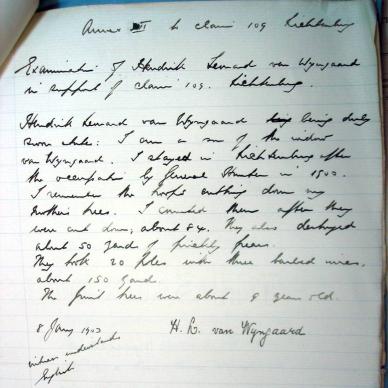 Annex III to claim 109 Lichtenburg
Examination of Hendrik Lenard van Wyngaard
in support of claim 109. Lichtenburg.
Hendrik Lenard van Wyngaard being duly
sworn states: I am a son of the widow
van Wyngaard. I stayed in Lichtenburg after
the occupation by General Hunter in 1900.
I remember the troops cutting down my
mother's trees. I counted them after they
were cut down, about 84. They also destroyed
about 50 yards of prickly pears.
They took 20 poles with three barbed wires,
about 150 yards.
The fruit trees were about 9 years old.
8 Jany 1903 H. L. van Wyngaard
witness understands
English